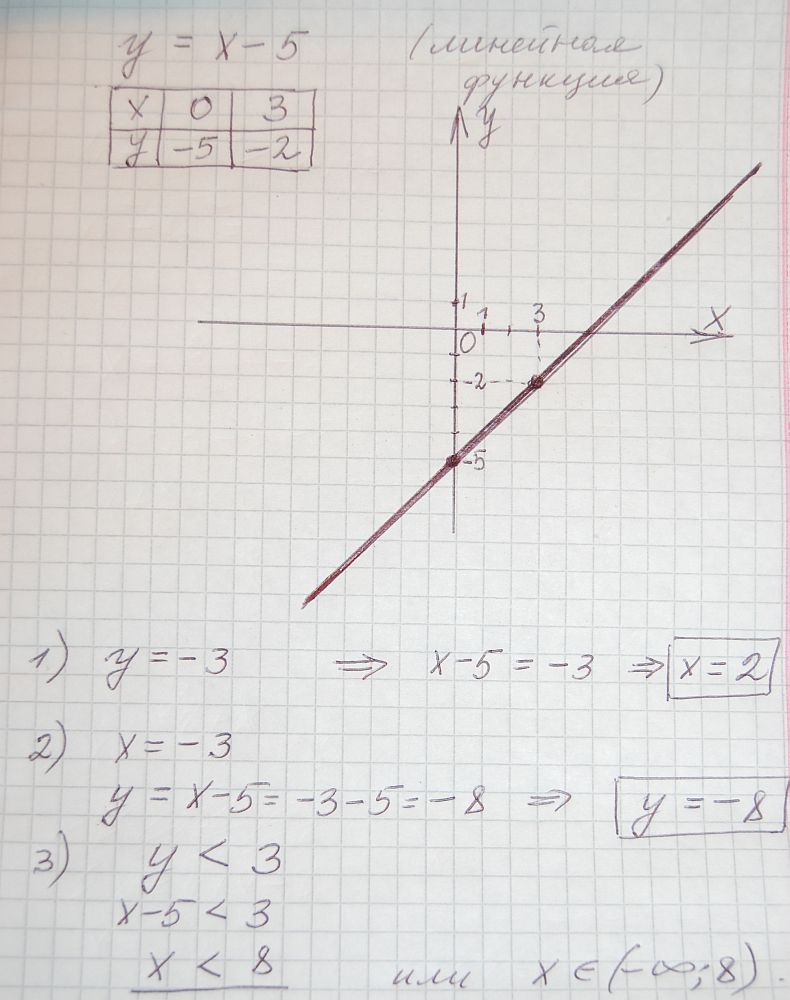 y = x - 5 (линейная
функция)
x 0 3
y -5 -2
y
1
1 3
x
0
-2
-5
1) y = -3 ⇒ x-5 = -3 ⇒ x = 2
2) x = -3
y = x-5 = -3-5 = -8 ⇒ y = -8
3) y < 3
x-5 < 3
x < 8 или x ∈ (-∞; 8).